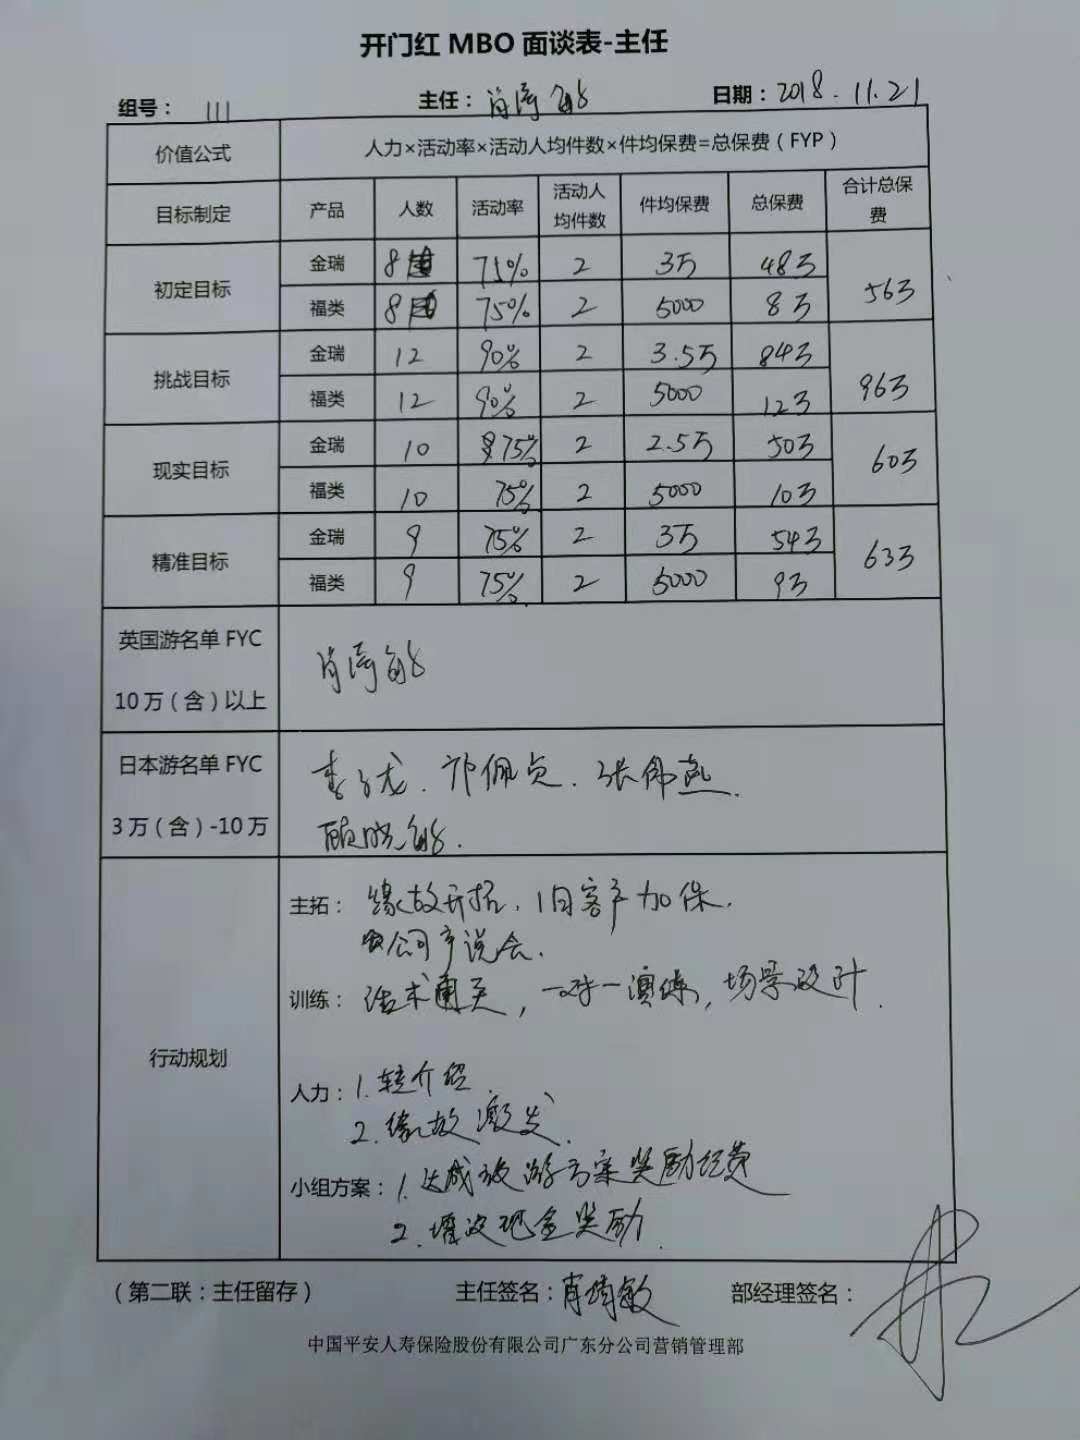 开门红 MBO 面谈表-主任
组号： 111 主任： 肖 日期：2018.11.21
价值公式 人力×活动率×活动人均件数×件均保费=总保费（FYP）
目标制定 产品 人数 活动率 活动人均件数 件均保费 总保费 合计总保费
初定目标 金瑞 8 75% 2 3万 48万 56万
福类 8 75% 2 5000 8万
挑战目标 金瑞 12 90% 2 3.5万 84万 96万
福类 12 90% 2 5000 12万
现实目标 金瑞 10 75% 2 2.5万 50万 60万
福类 10 75% 2 5000 10万
精准目标 金瑞 9 75% 2 3万 54万 63万
福类 9 75% 2 5000 9万
英国游名单 FYC
10 万（含）以上
日本游名单 FYC
3 万（含）-10 万
张伟燕.
行动规划
主拓： 缘故开拓. 旧客户加保.
公司产说会.
训练： 话术通关，一对一演练，场景设计.
人力：1.转介绍
2.缘故激发.
小组方案：1.达成旅游方案奖励经费
2.增设现金奖励.
（第二联：主任留存） 主任签名：肖琦敏 部经理签名：
中国平安人寿保险股份有限公司广东分公司营销管理部